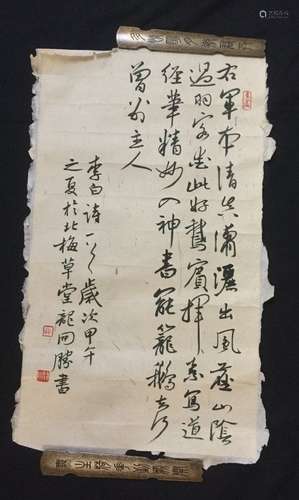 右軍本清真瀟灑出風塵山陰
過羽客愛此好鵝賓揮素寫道
經筆精妙入神書罷籠鵝去何
曾別主人
李白詩一首歲次甲午
之夏於北梅草堂勝書